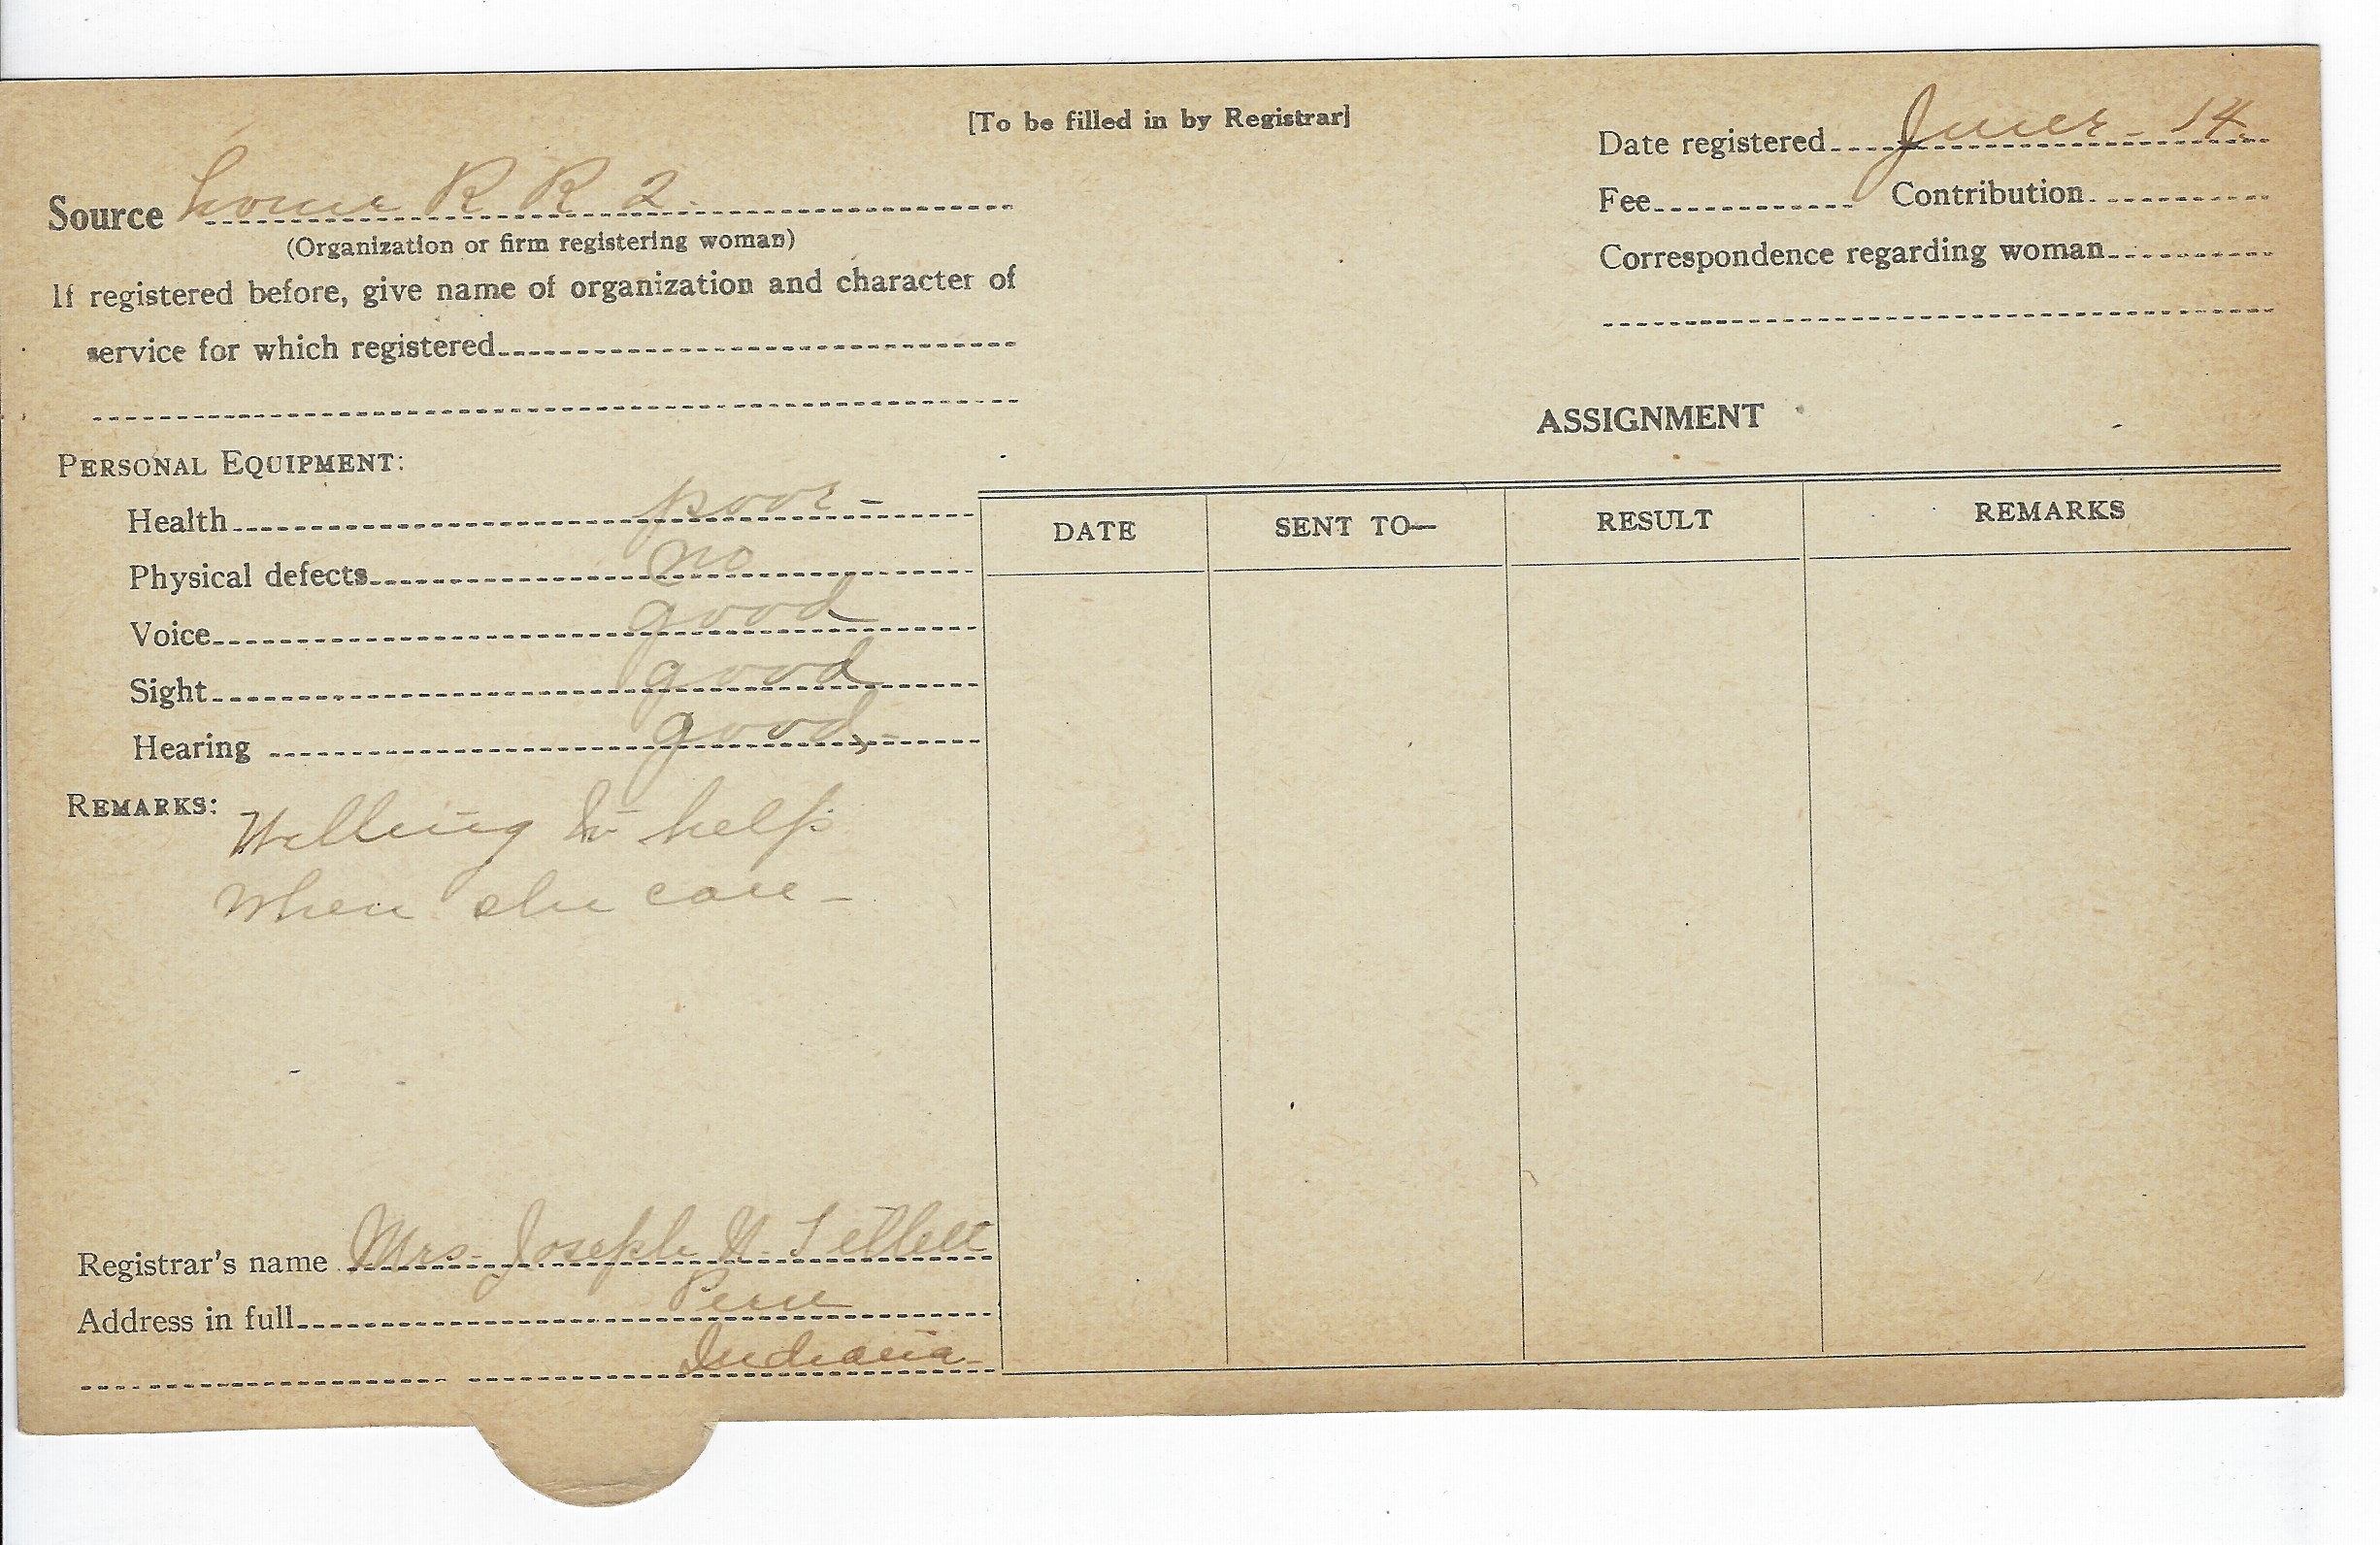 [To be filled in by Registrar]
Date registered June - 14
Source home R R 2.
(Organization or firm registering woman)
Fee Contribution
Correspondence regarding woman
If registered before, give name of organization and character of
service for which registered
ASSIGNMENT
PERSONAL EQUIPMENT:
Health poor -
Physical defects no
Voice good
Sight good
Hearing good -
DATE SENT TO— RESULT REMARKS
REMARKS: Willing to help
when she can -
Registrar's name Mrs. Joseph N. Tillett
Address in full Peru
Indiana